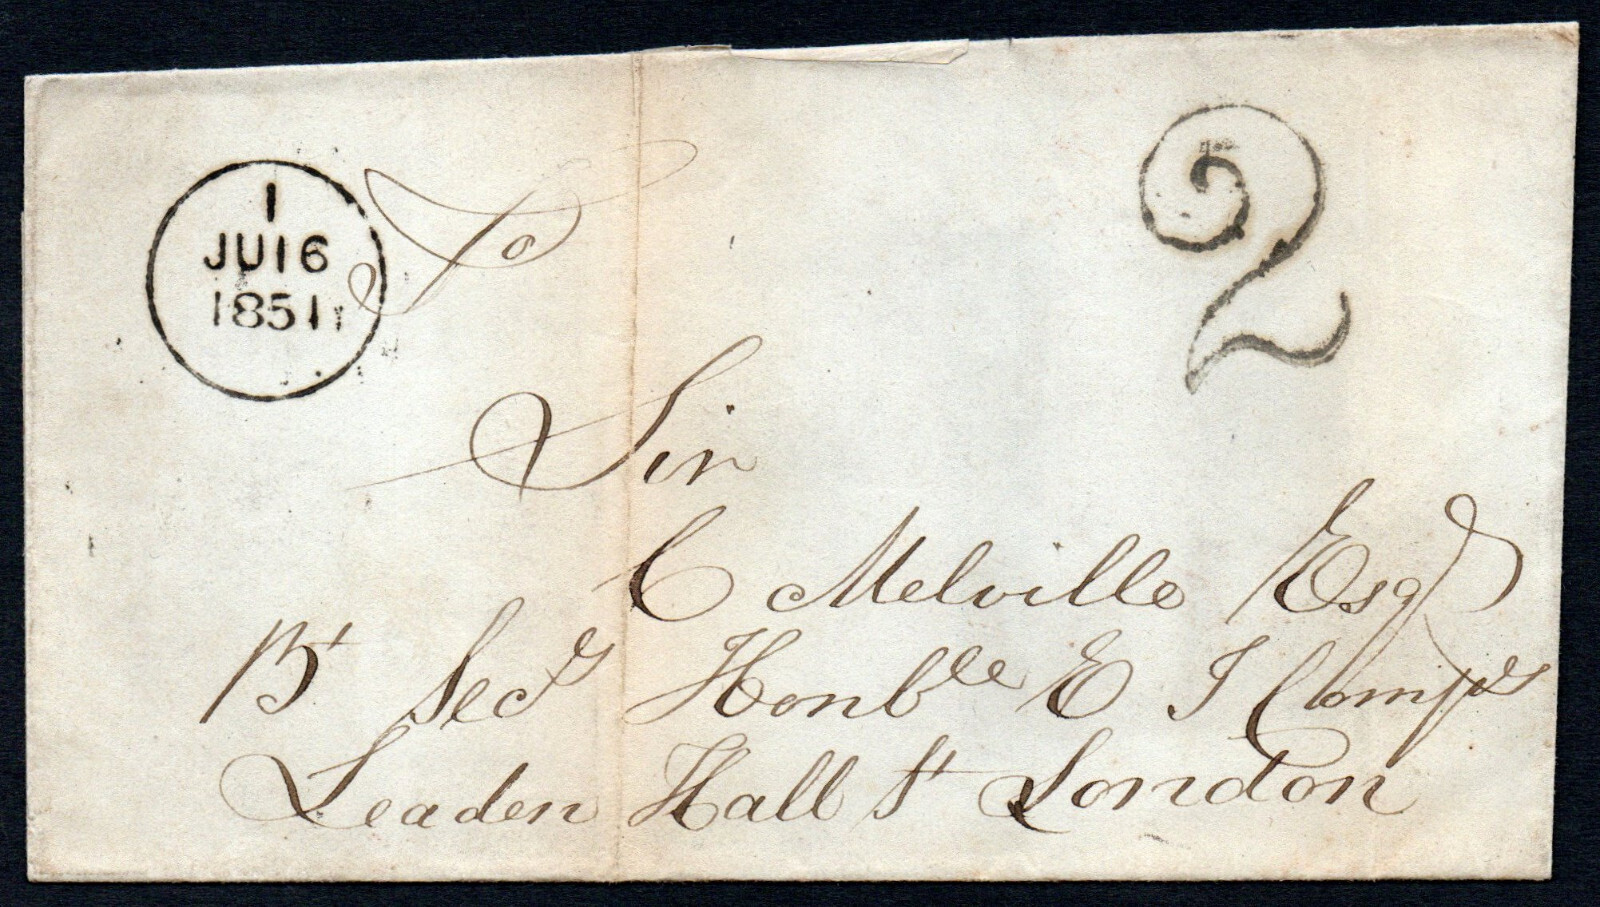 1
JU16
1851
2
To
Sir
C Melville Esqr
Secy Honble E I Compy
Leaden Hall St London